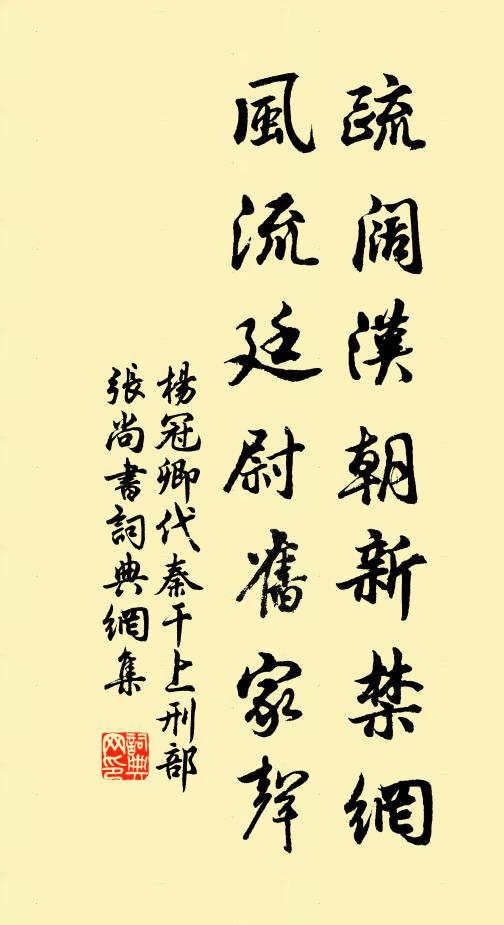 疏闊漢朝新禁網
風流廷尉舊家聲
楊冠卿代秦干上刑部
張尚書詞典網集
詞典網印